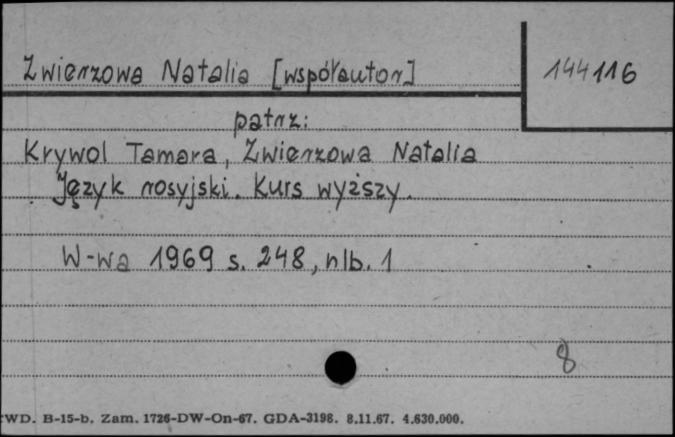 Zwierzowa Natalia [współautor]
144116
patrz:
Krywol Tamara, Zwierzowa Natalia
Język rosyjski. Kurs wyższy.
W-wa 1969 s. 248, nlb. 1
8
WD. B-15-b. Zam. 1726-DW-On-67. GDA-3198. 8.11.67. 4.630.000.